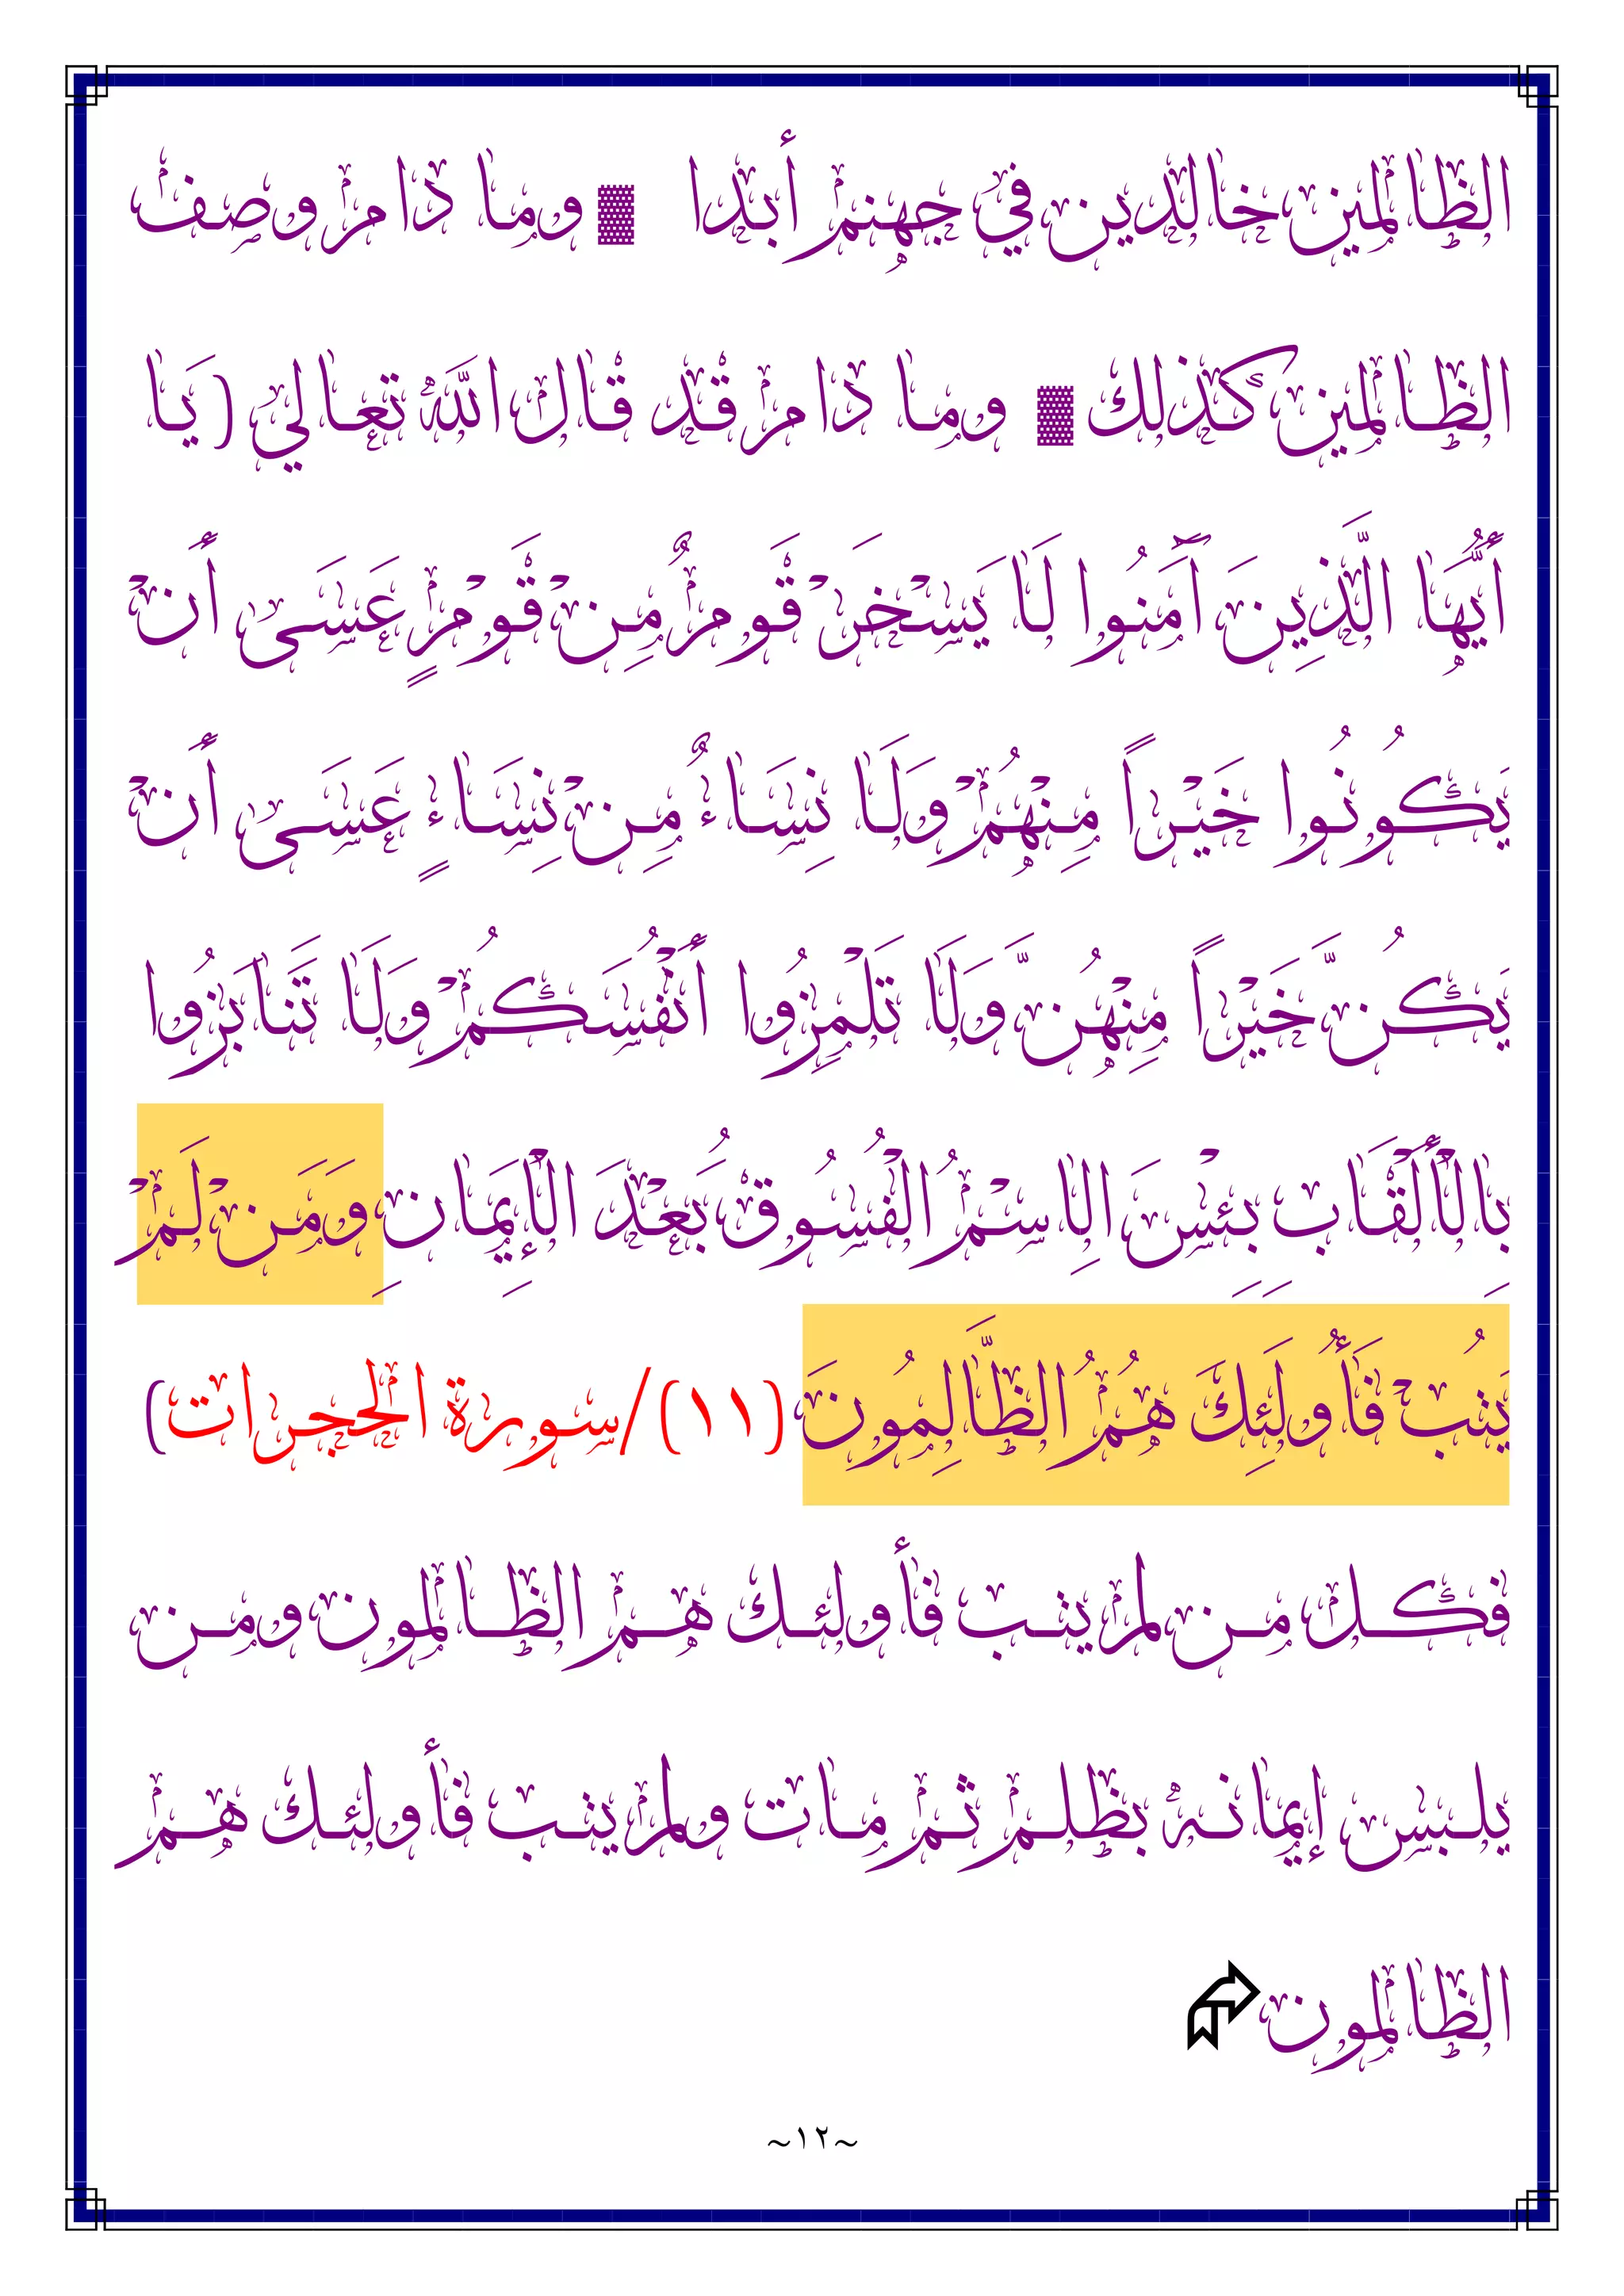 الظالمين خالدين في جهنم أبدا ▓ وما دام وصف
الظالمين كذلك ▓ وما دام قد قال الله تعالي (يَا
أَيُّهَا الَّذِينَ آَمَنُوا لَا يَسْخَرْ قَومٌ مِنْ قَوْمٍ عَسَى أَنْ
يَكُونُوا خَيْراً مِنْهُمْ وَلَا نِسَاءٌ مِنْ نِسَاءٍ عَسَى أَنْ
يَكُنَّ خَيْراً مِنْهُنَّ وَلَا تَلْمِزُوا أَنْفُسَكُمْ وَلَا تَنَابَزُوا
بِالْأَلْقَابِ بِئْسَ الِاسْمُ الْفُسُوقُ بَعْدَ الْإِيمَانِ وَمَنْ لَمْ
يَتُبْ فَأُولَئِكَ هُمُ الظَّالِمُونَ (١١)/سورة الحجرات)
فكل من لم يتب فأولئك هم الظالمون ومن
يلبس إيمانه بظلم ثم مات ولم يتب فأولئك هم
الظالمون
~١٢~